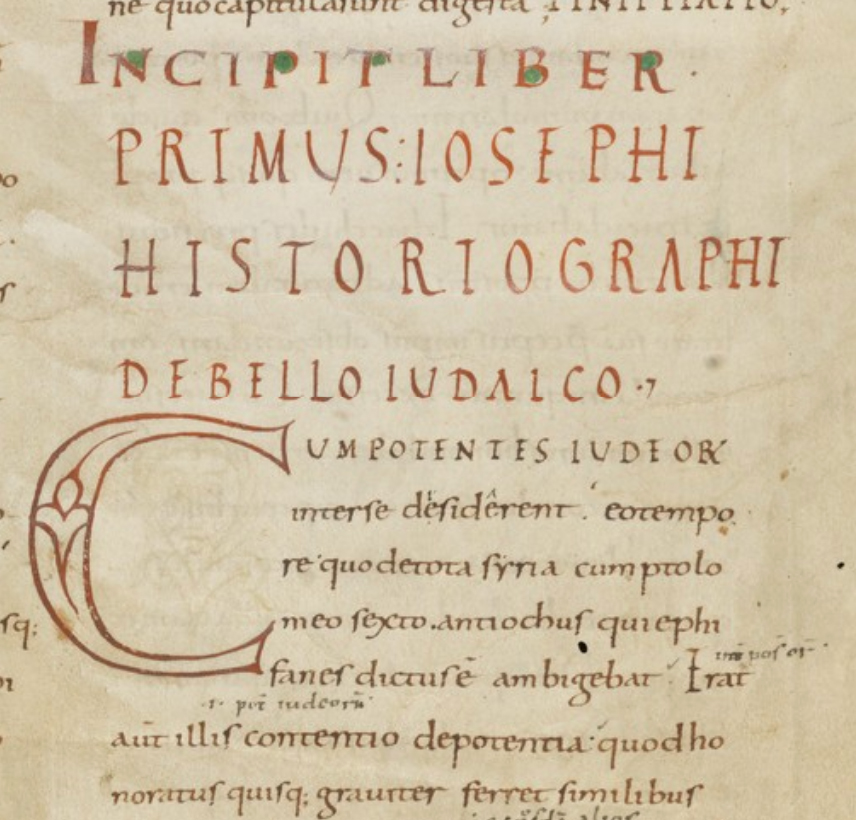 ne quo capitulatim digesta
INCIPIT LIBER.
PRIMUS: IOSEPHI
HISTORIOGRAPHI
DE BELLO IUDAICO
CUM POTENTES IUDEORꝜ
inter se desiderent. eo tempo
re quo de tota syria cum ptolo
meo sexto. antiochus qui ephi
fanes dictus ē ambigebat. Erat
.i. pot̄ iudeorū
aut̄ illis contentio de potentia quod ho
noratus quisq; grauiter ferret similibus